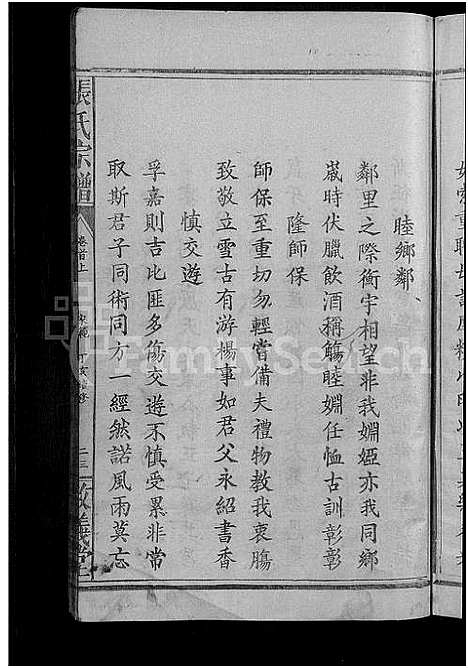 睦鄉鄰
鄰里之際衡宇相望非我婣婭亦我同鄉
嵗時伏臘飲酒稱觴睦婣任恤古訓彰彰
隆師保
師保至重切勿輕嘗備夫禮物教我衷腸
致敬立雪古有游楊事如君父永紹書香
慎交遊
孚嘉則吉比匪多傷交遊不慎受累非常
取斯君子同術同方一經然諾風雨莫忘
張氏宗譜
卷首上
FamilySearch